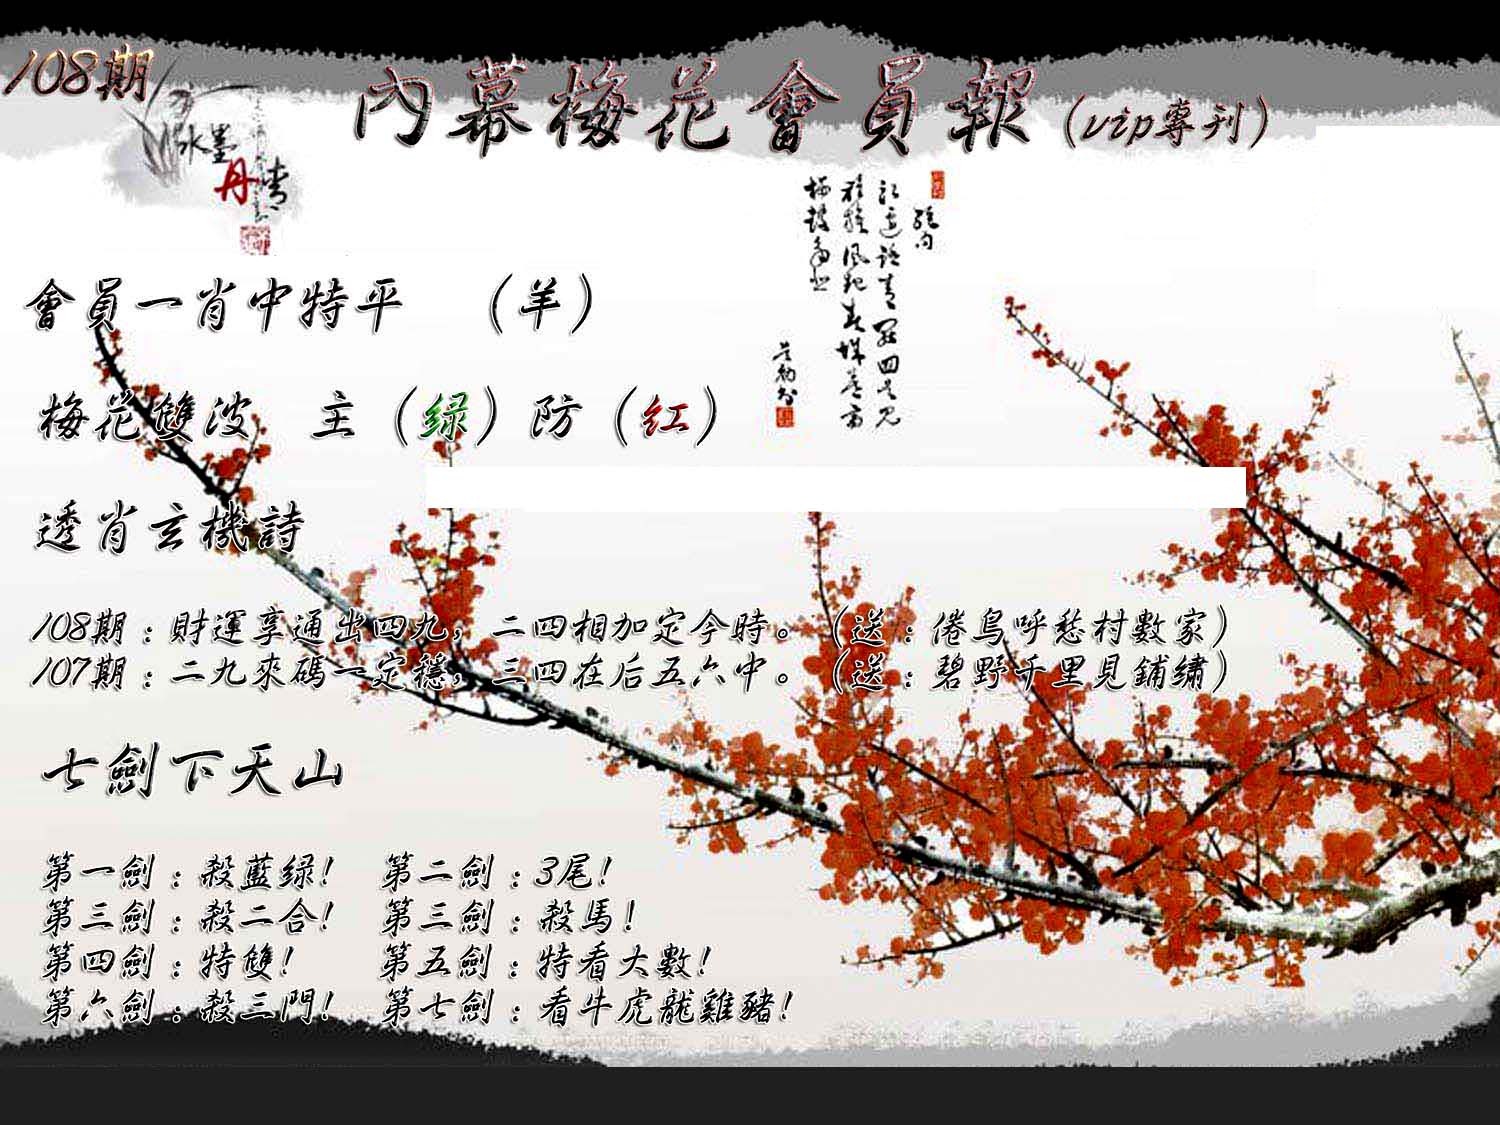 108期
內幕梅花會員報（vip專刊）
水墨
丹青
會員一肖中特平　（羊）
梅花雙波　主（绿）防（红）
透肖玄機詩
108期：財運享通出四九，二四相加定今時。（送：倦鳥呼愁村數家）
107期：二九來碼一定穩，三四在后五六中。（送：碧野千里見鋪繡）
七劍下天山
第一劍：殺藍绿！　第二劍：3尾！
第三劍：殺二合！　第三劍：殺馬！
第四劍：特雙！　第五劍：特看大數！
第六劍：殺三門！　第七劍：看牛虎龍雞豬！